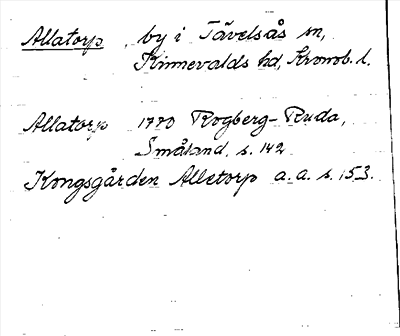 Allatorp by i Tävelsås sn,
Kinnevalds hd, Kronob. l.
Allatorp 1770 Rogberg-Ruda,
Småland, s. 142
Kongsgården Alletorp a. a. s. 153.